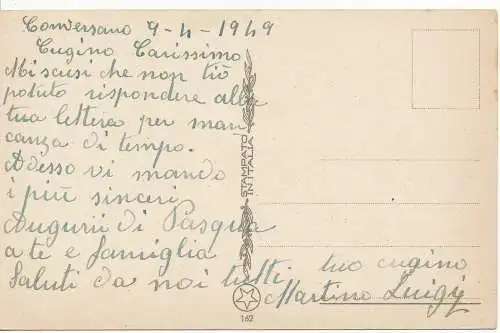 Conversano 9-4-1949
Cugino Carissimo
Mi scusi che non tiò
potuto rispondere alla
tua lettera per man
canza di tempo.
Adesso vi mando
i più sinceri
Augurii di Pasqua
a te e famiglia
Saluti da noi tutti. tuo cugino
Martino Luigi
STAMPATO
IN ITALIA
162